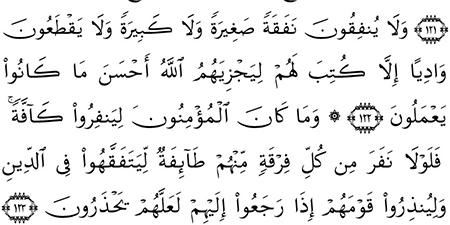 ١٢١ وَلَا يُنفِقُونَ نَفَقَةً صَغِيرَةً وَلَا كَبِيرَةً وَلَا يَقْطَعُونَ
وَادِيًا إِلَّا كُتِبَ لَهُمْ لِيَجْزِيَهُمُ ٱللَّهُ أَحْسَنَ مَا كَانُوا۟
يَعْمَلُونَ ١٢٢ ۞ وَمَا كَانَ ٱلْمُؤْمِنُونَ لِيَنفِرُوا۟ كَآفَّةًۚ
فَلَوْلَا نَفَرَ مِن كُلِّ فِرْقَةٍ مِّنْهُمْ طَآئِفَةٌ لِّيَتَفَقَّهُوا۟ فِى ٱلدِّينِ
وَلِيُنذِرُوا۟ قَوْمَهُمْ إِذَا رَجَعُوٓا۟ إِلَيْهِمْ لَعَلَّهُمْ يَحْذَرُونَ ١٢٣